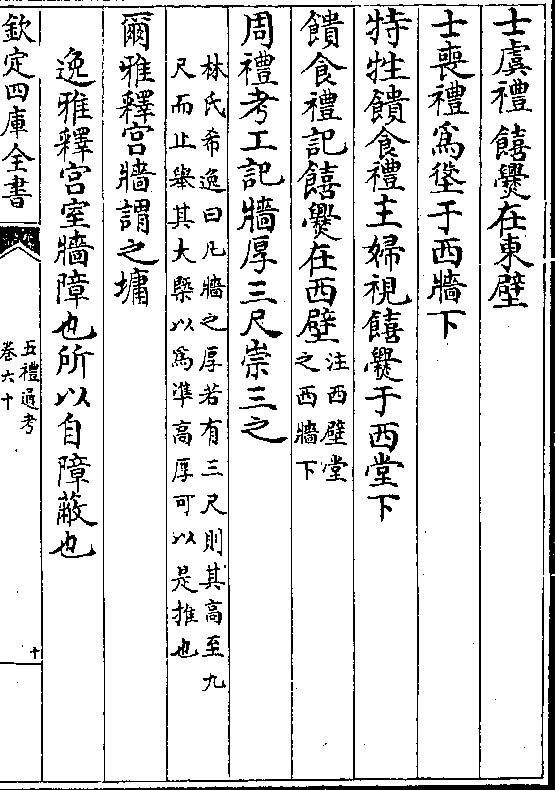 士虞禮饎爨在東壁
士喪禮為垼于西牆下
特牲饋食禮主婦視饎爨于西堂下
饋食禮記饎爨在西壁注西壁堂
之西牆下
周禮考工記牆厚三尺崇三之
林氏希逸曰凡牆之厚若有三尺則其高至九
尺而止舉其大槩以為準高厚可以是推也
爾雅釋宫牆謂之墉
逸雅釋宫室牆障也所以自障蔽也
欽定四庫全書
五禮通考
卷六十
十